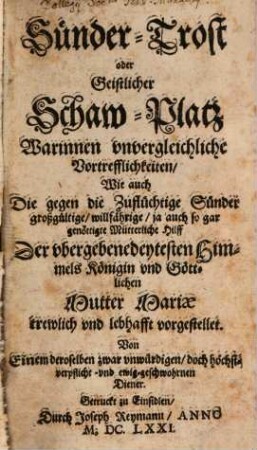 Sünder-Trost
oder
Geistlicher
Schaw-Platz
Warinnen vnvergleichliche
Vortrefflichkeiten/
Wie auch
Die gegen die Zuflüchtige Sünder
großgültige/ willfährige/ ja auch so gar
genöttigte Mütterliche Hülff
Der vbergebenedeytesten Him-
mels Königin vnd Gött-
lichen
Mutter Mariæ
trewlich vnd lebhafft vorgestellet.
Von
Einem deroselben zwar vnwürdigen/ doch höchst-
verpflicht-vnd ewig-geschwohrnen
Diener.
Getruckt zu Einsidlen/
Durch Joseph Reymann/ ANNO
M. DC. LXXI.